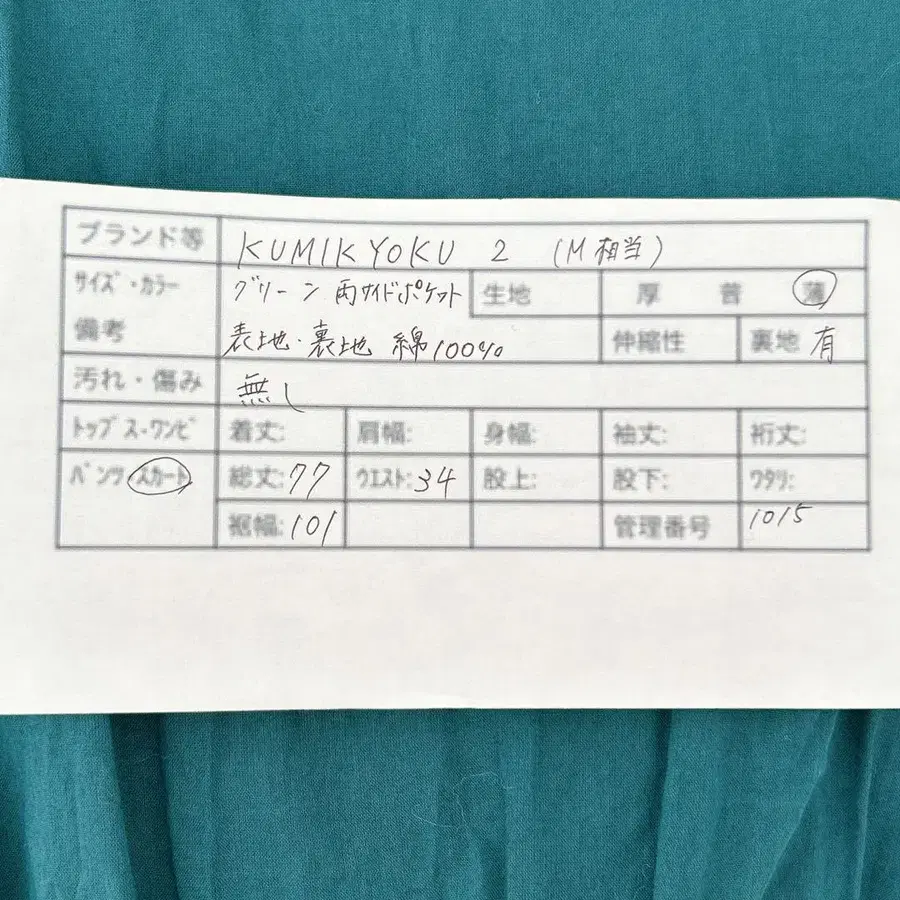 ブランド等 KUMIKYOKU 2 (M相当)
サイズ・カラー グリーン 両サイドポケット 生地 厚 普 薄
備考 表地・裏地 綿100% 伸縮性 裏地 有
汚れ・傷み 無し
トップス・ワンピ 着丈: 肩幅: 身幅: 袖丈: 裄丈:
パンツ スカート 総丈: 77 ウエスト: 34 股上: 股下: ワタリ:
裾幅: 101 管理番号 1015